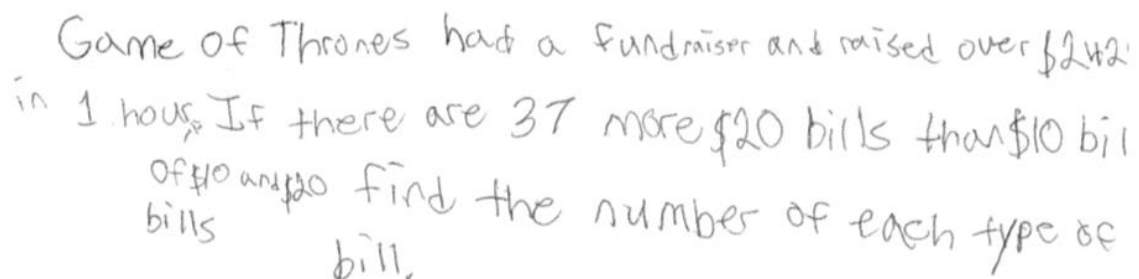 Game of Thrones had a fundraiser and raised over $242
in 1 hour, If there are 37 more $20 bills than $10 bil
of $10 and $20 find the number of each type of
bills
bill.